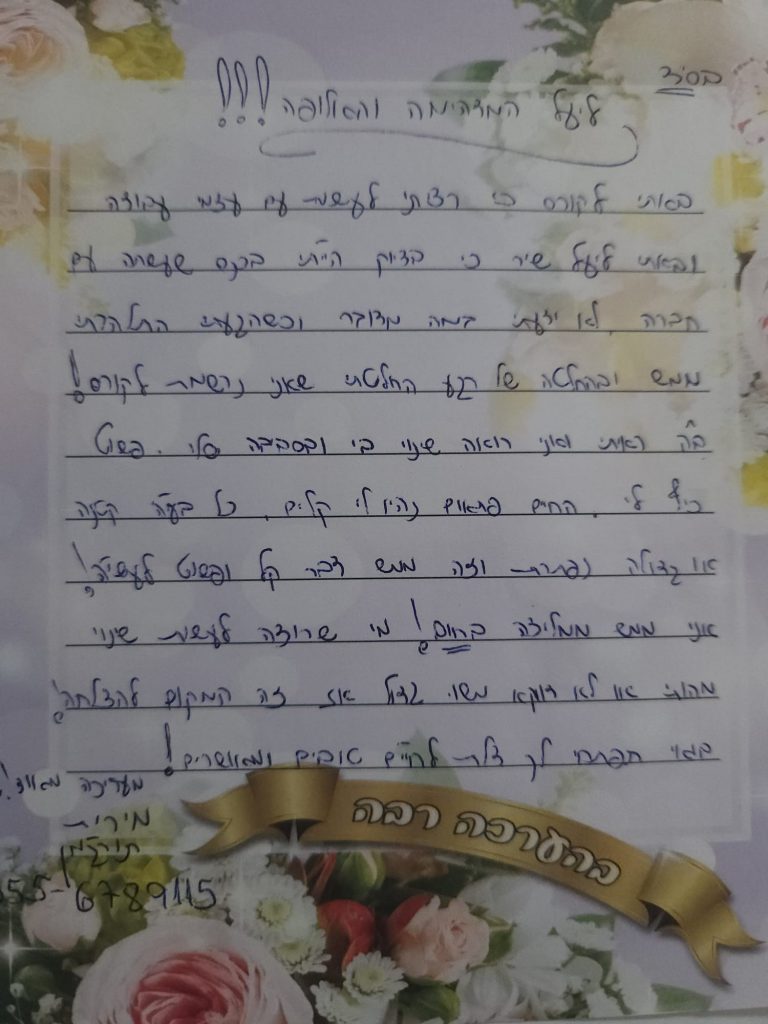 בס"ד
ליעל המדהימה והאלופה!!!
באתי לקורס כי רציתי לעשות עם עצמי עבודה
ובאתי ליעל שיר כי בדיוק הייתי בכנס שעשתה עם
חברה, לא ידעתי במה מדובר וכשהגעתי התלהבתי
ממש ובהחלטה של רגע החלטתי שאני נרשמת לקורס!
ב"ה ראיתי ואני רואה שינוי בי ובסביבה שלי. פשוט
כיף לי. החיים פתאום נהיו לי קלים. כל בעיה קטנה
או גדולה נפתרת וזה ממש דבר קל ופשוט לעשיה!
אני ממש ממליצה בחום! מי שרוצה לעשות שינוי
מהותי או לא דוקא משו גדול אז זה המקום להצלחה!
בואי תפתחי לך דלת לחיים טובים ומאושרים!
מעריכה מאוד!
מירית
55-6789115
בהערכה רבה